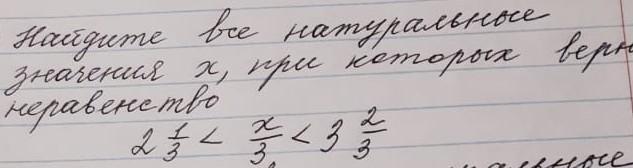 Найдите все натуральные
значения x, при которых верн
неравенство
2 1/3 < x/3 < 3 2/3